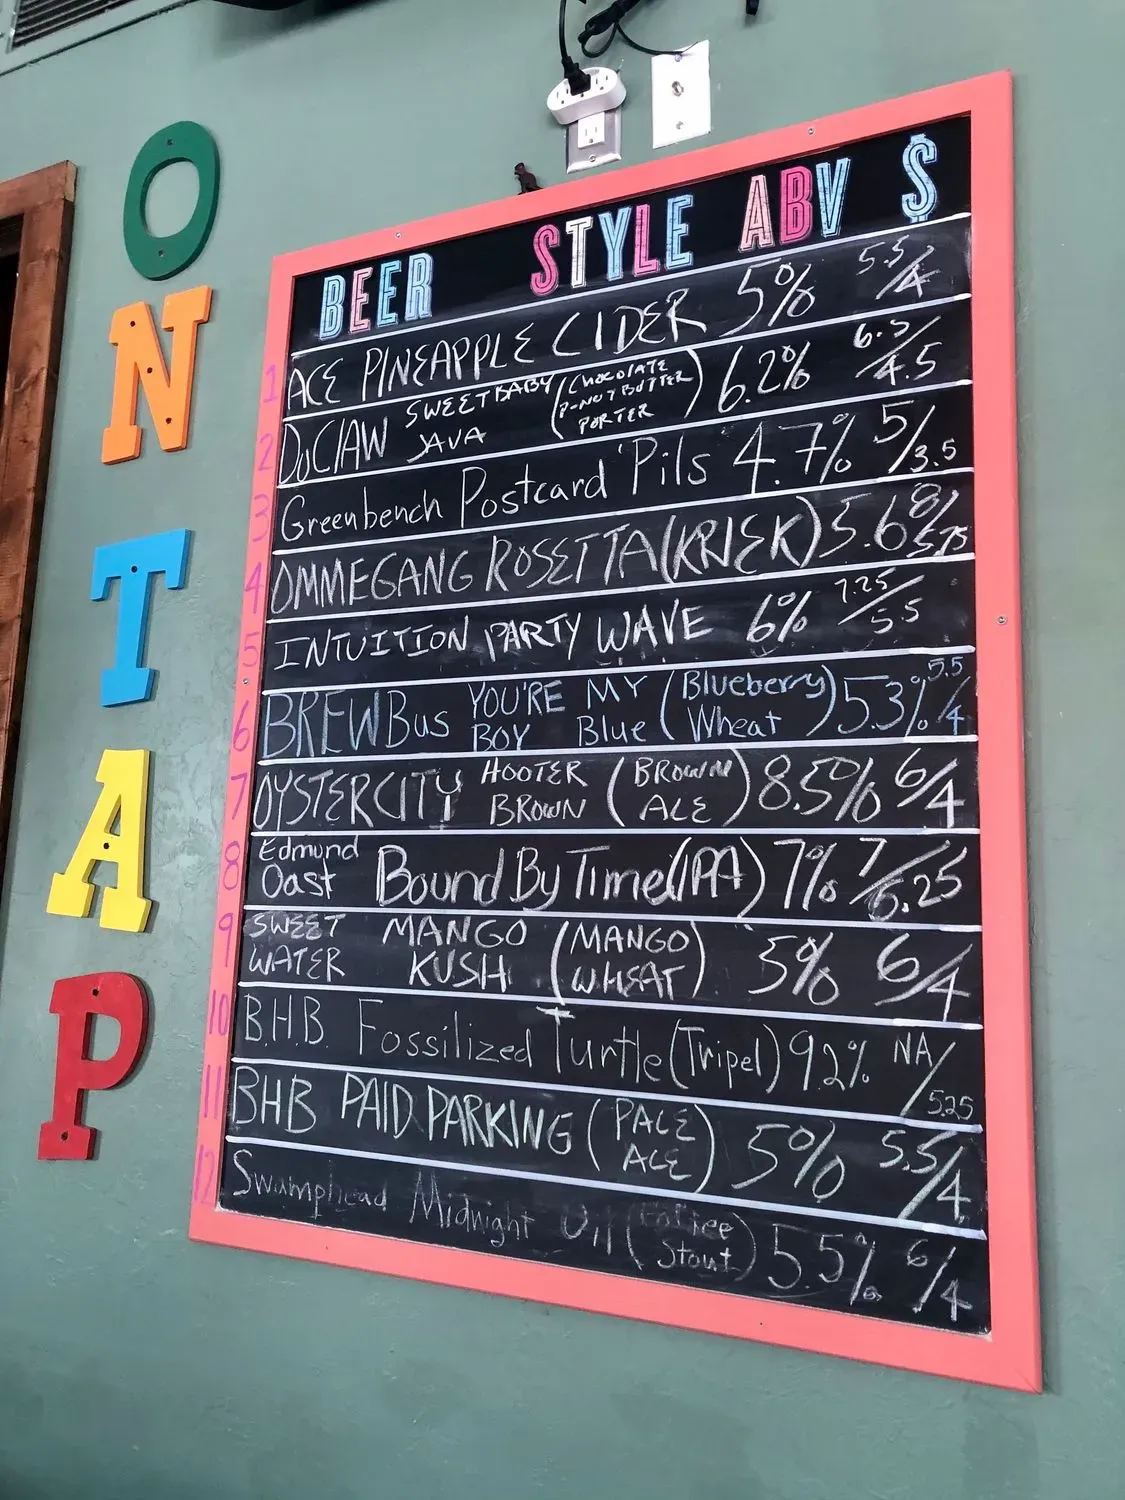 ON TAP
BEER STYLE ABV $
1 ACE PINEAPPLE CIDER 5% 5.5/4
2 DuClAW SWEETBABY JAVA (CHOCOLATE P-NUT BUTTER PORTER) 6.2% 6.5/4.5
3 Greenbench Postcard Pils 4.7% 5/3.5
4 OMMEGANG ROSETTA (KRIEK) 5.6 8/5.75
5 INTUITION PARTY WAVE 6% 7.25/5.5
6 BREWBus YOU'RE MY BOY Blue (Blueberry Wheat) 5.3% 5.5/4
7 OYSTERCITY HOOTER BROWN (BROWN ALE) 8.5% 6/4
8 Edmund Oast Bound By Time (IPA) 7% 7/5.25
9 SWEET WATER MANGO KUSH (MANGO WHEAT) 5% 6/4
10 B.H.B. Fossilized Turtle (Tripel) 9.2% NA/5.25
11 BHB PAID PARKING (PALE ALE) 5% 5.5/4
12 Swamphead Midnight Oil (Coffee Stout) 5.5% 6/4